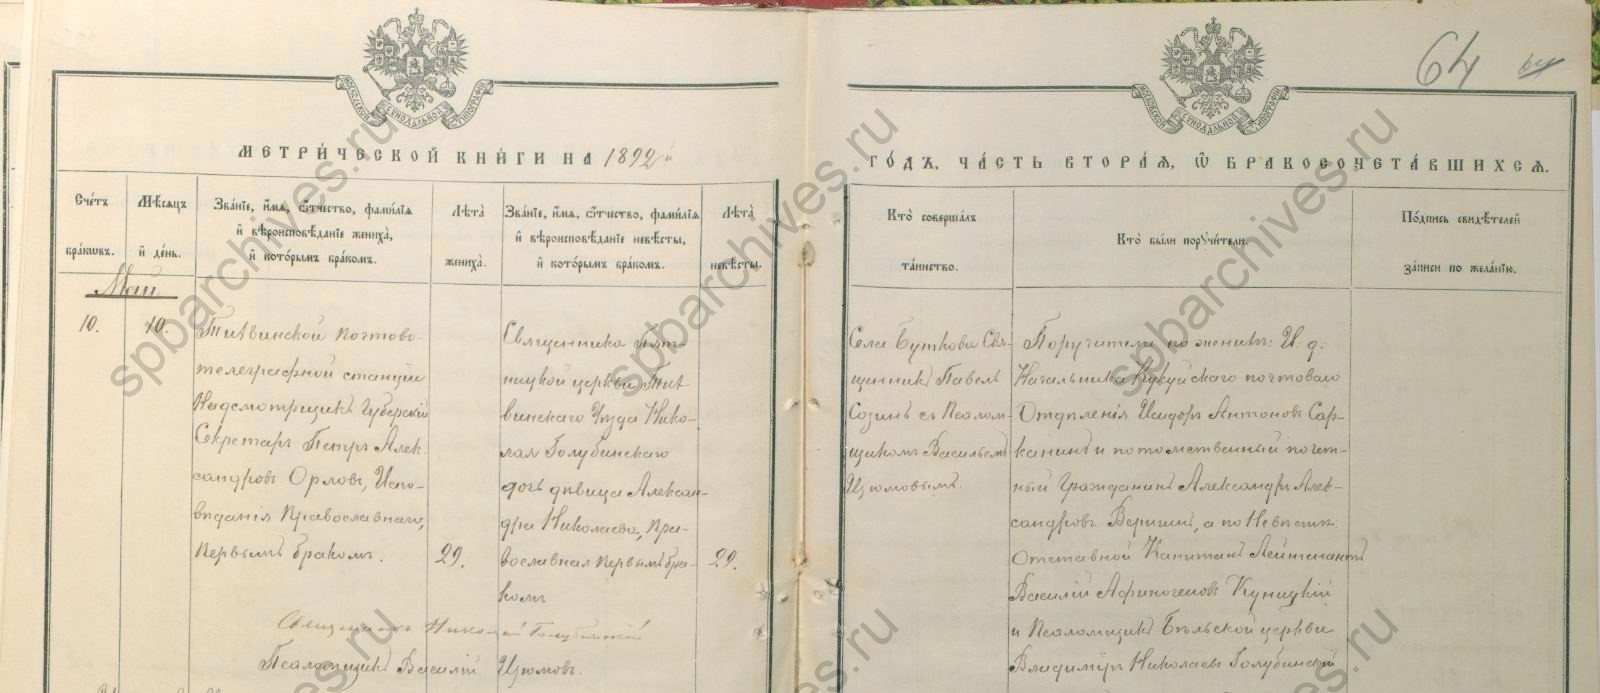 МОСКОВСКОЙ СѴНОДАЛЬНОЙ ТИПОГРАФІИ
МОСКОВСКОЙ СѴНОДАЛЬНОЙ ТИПОГРАФІИ
64
64
МЕТРИ́ЧЕСКОЙ КНИ́ГИ НА 1892й
ГО́ДЪ, ЧА́СТЬ ВТОРА́Я, Ѿ БРАКОСОЧЕТА́ВШИХСЯ.
Сче́тъ
бра́кѡвъ.
Мѣ́сяцъ
и҆ де́нь.
Зва́нїе, и҆́мя, ѻ҆́тчество, фами́лїя
и҆ вѣроисповѣ́данїе жениха̀,
и҆ кото́рымъ бра́комъ.
Лѣ́та
жениха̀.
Зва́нїе, и҆́мя, ѻ҆́тчество, фами́лїя
и҆ вѣроисповѣ́данїе невѣ́сты,
и҆ кото́рымъ бра́комъ.
Лѣ́та
невѣ́сты.
Кто̀ соверша́лъ
та́инство.
Кто̀ бы́ли поручи́тели.
По́дпись свидѣ́телей
за́писи по жела́нїю.
Май
10.
10.
Тихвинской почтово-
телеграфной станціи
Надсмотрщикъ Губерскій
Секретарь Петръ Алек-
сандровъ Орловъ, Испо-
вѣданія Православнаго,
первымъ бракомъ.
29.
Священника Пят-
ницкой церкви Тих-
винскаго Уѣзда Нико-
лая Голубинскаго
дочь дѣвица Алексан-
дра Николаева, Пра-
вославная первымъ бра-
комъ
29.
Села Буткова Свя-
щенникъ Павелъ
Созинъ съ Псалом-
щикомъ Васильемъ
Изюмовымъ.
Поручители по женихѣ: И. д.
Начальника Кукуйскаго почтоваго
Отдѣленія Исидоръ Антоновъ Сар-
канинъ и потомственный почет-
ный Гражданинъ Александръ Алек-
сандровъ Веригинъ, а по Невѣстѣ:
Отставной Капитанъ Лейтенантъ
Василій Афиногеновъ Куницкій
и Псаломщикъ Бѣльской церкви
Владиміръ Николаевъ Голубинскій
Священникъ Николай Голубинскій
Псаломщикъ Василій Изюмовъ.
spbarchives.ru
spbarchives.ru
spbarchives.ru